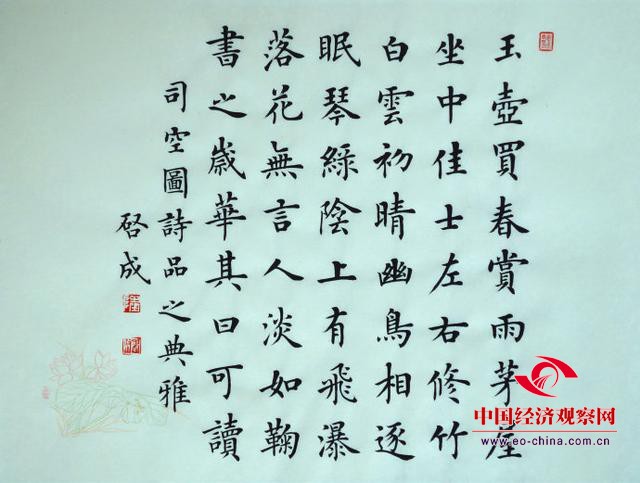 玉壺買春賞雨茅屋
坐中佳士左右修竹
白雲初晴幽鳥相逐
眠琴綠陰上有飛瀑
落花無言人淡如鞠
書之歲華其曰可讀
司空圖詩品之典雅
啓成
中国经济观察网
www.eo-china.com.cn